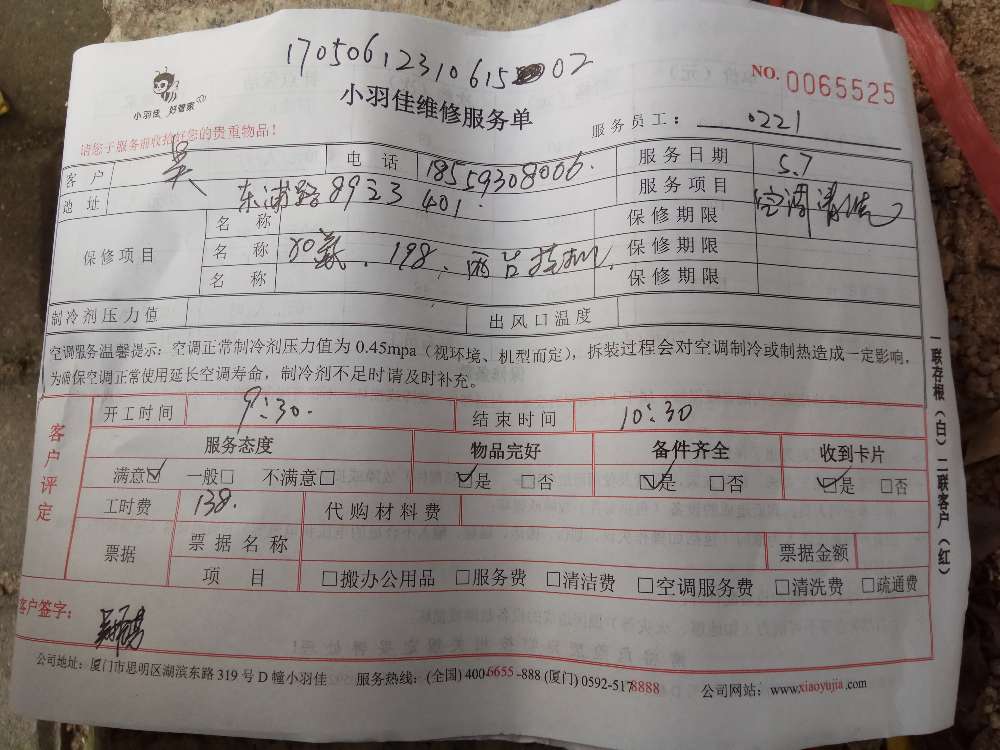 17050612310615 02
小羽佳 好管家
小羽佳维修服务单
NO. 0065525
请您于服务前收拾好您的贵重物品！
服务员工： 0221
客户 吴 电话 18559308006. 服务日期 5.7
地址 东浦路8923 401. 服务项目 空调清洗
保修项目 名称 保修期限
名称 198. 两台挂机 保修期限
名称 保修期限
制冷剂压力值 出风口温度
空调服务温馨提示：空调正常制冷剂压力值为0.45mpa（视环境、机型而定），拆装过程会对空调制冷或制热造成一定影响，
为确保空调正常使用延长空调寿命，制冷剂不足时请及时补充。
客户评定
开工时间 9:30. 结束时间 10:30
服务态度 物品完好 备件齐全 收到卡片
满意☑ 一般□ 不满意□ ☑是 □否 ☑是 □否 ☑是 □否
工时费 138. 代购材料费
票据 票据名称 票据金额
项目 □搬办公用品 □服务费 □清洁费 □空调服务费 □清洗费 □疏通费
客户签字：
公司地址：厦门市思明区湖滨东路319号D幢小羽佳 服务热线：(全国) 4006655-888 (厦门) 0592-5178888 公司网站：www.xiaoyujia.com
一联存根（白）二联客户（红）